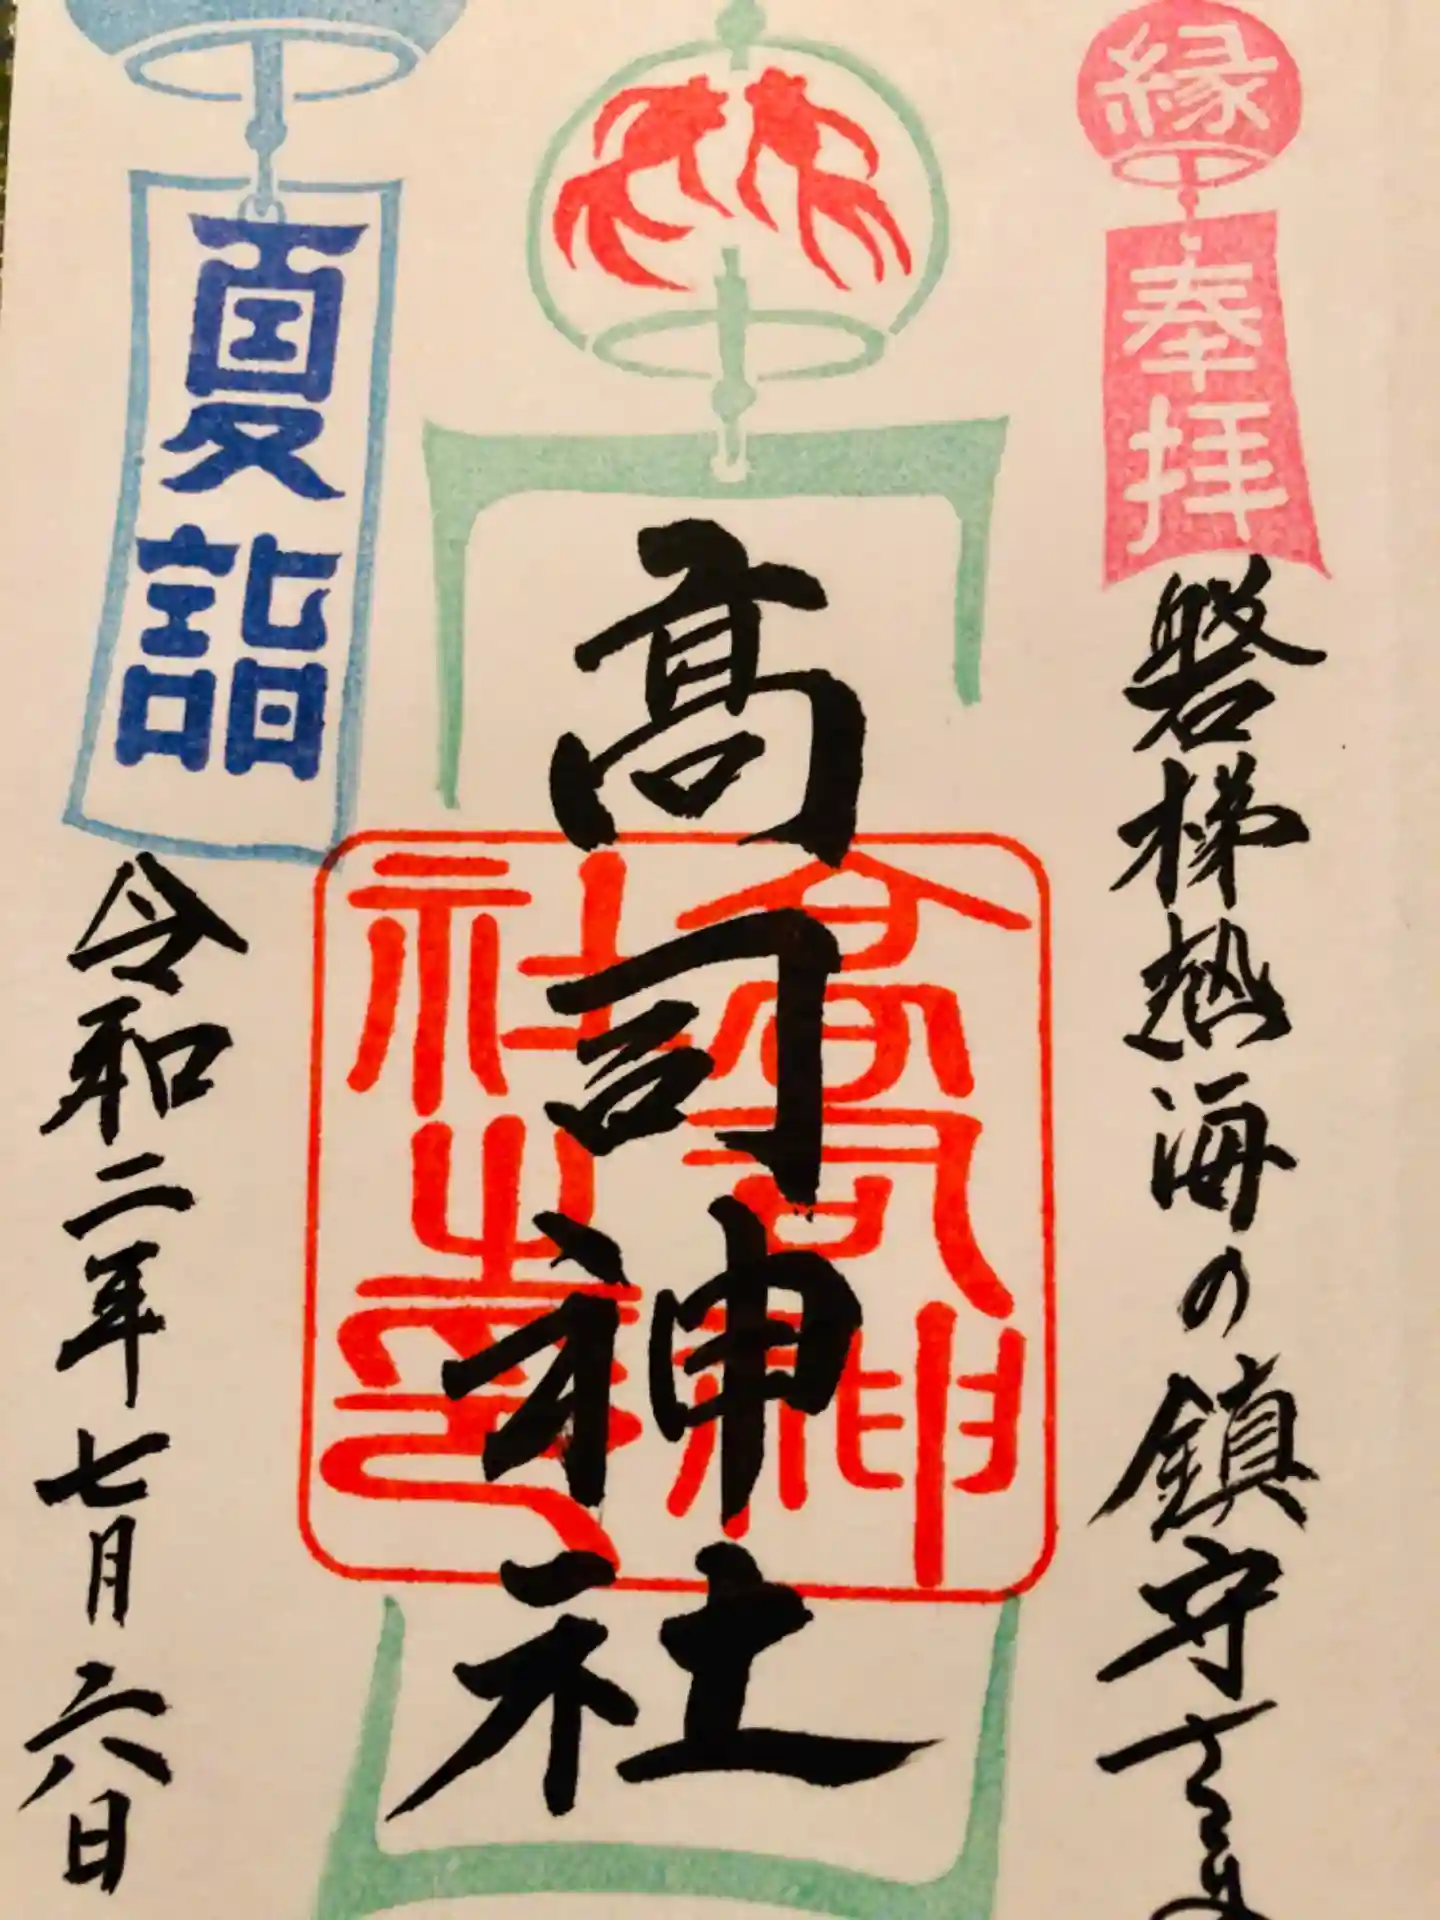 縁
奉拝
磐梯熱海の鎮守
高司神社
高司神社之印
夏詣
令和二年七月六日